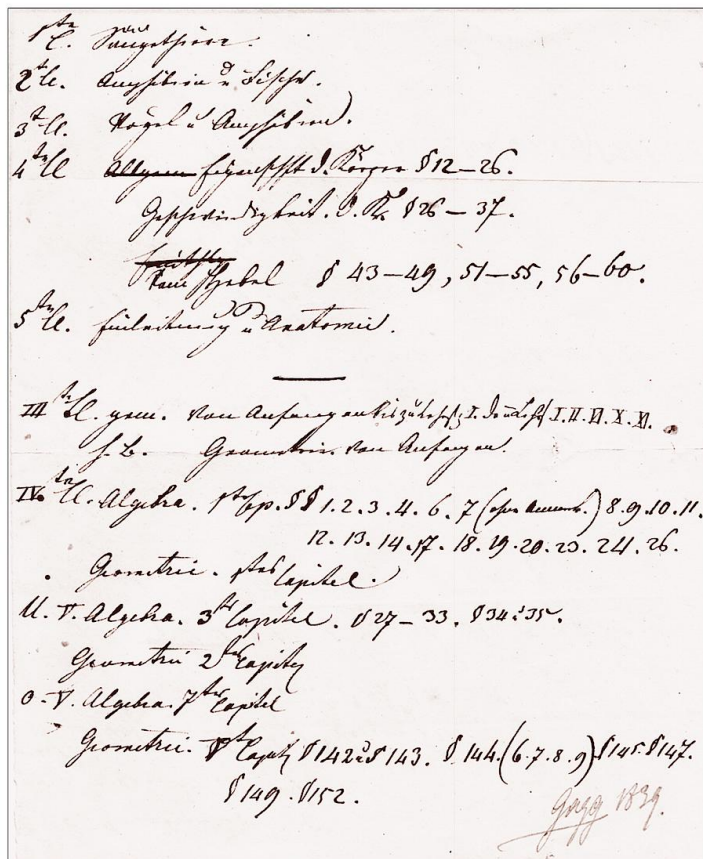 1te Cl. Säugethiere.
2te Cl. Amphibien u Fische.
3te Cl. Vögel u Amphibien).
4te Cl Allgem Eigenschft d. Körper § 12 – 26.
Geschwindigkeit. d. K. § 26 – 37.
Hebel § 43 – 49, 51 – 55, 56 – 60.
5te Cl. Einleitung u Anatomie.
III te Cl. gem. Von Anfang an bis zu Lehrs. I. I. II. VI. X. XI.
f. B. Geometrie. Von Anfang an.
IV. te Cl. Algebra. 1stes Cp. §§ 1. 2. 3. 4. 6. 7 (ohne Anmerk.) 8. 9. 10. 11.
12. 13. 14. 17. 18. 19. 20. 23. 24. 26.
Geometrie. 1stes Capitel.
U. V. Algebra. 3tes Capitel. § 27 – 33. § 34 u 35.
Geometrie 2tes Capitel
O. V. Algebra. 7tes Capitel
Geometrie. Capitel § 142 u § 143. § 144. (6. 7. 8. 9) § 145. § 147.
§ 149. § 152.
Gugg 1839.